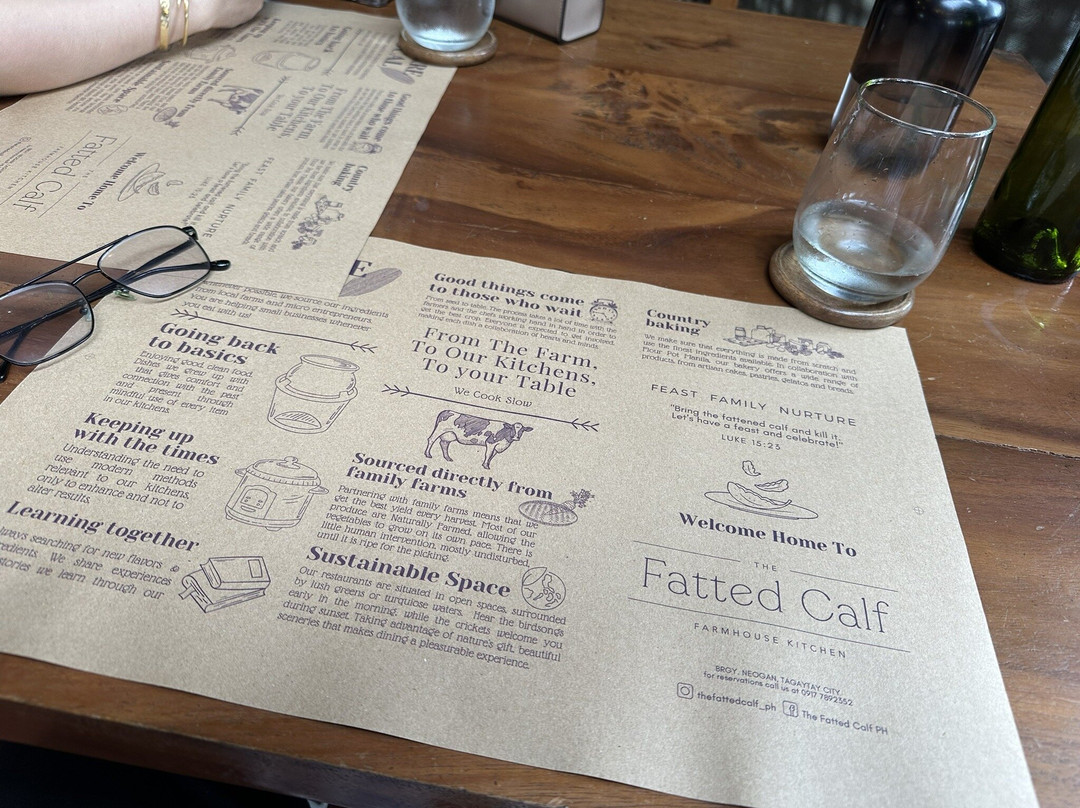 E
possible, we source our ingredients
from local farms and micro entrepreneurs
you are helping small businesses whenever
you eat with us!
Going back
to basics
Enjoying good, clean food.
Dishes we grew up with
that gives comfort and
connection with the past
and present through
mindful use of every item
in our kitchens.
Keeping up
with the times
Understanding the need to
use modern methods
relevant to our kitchens,
only to enhance and not to
alter results.
Learning together
always searching for new flavors &
We share experiences
stories we learn through our
Good things come
to those who wait
From seed to table. The process takes a lot of time with the
farmers and the chefs working hand in hand in order to
get the best crop. Everyone is expected to get involved,
making each dish a collaboration of hearts and minds.
From The Farm,
To Our Kitchens,
To your Table
We Cook Slow
Sourced directly from
family farms
Partnering with family farms means that we
get the best yield every harvest. Most of our
produce are Naturally Farmed, allowing the
vegetables to grow on its own pace. There is
little human intervention, mostly undisturbed,
until it is ripe for the picking.
Sustainable Space
Our restaurants are situated in open spaces, surrounded
by lush greens or turquoise waters. Hear the birdsongs
early in the morning, while the crickets welcome you
during sunset. Taking advantage of nature's gift, beautiful
sceneries that makes dining a pleasurable experience.
Country
baking
We make sure that everything is made from scratch and
use the finest ingredients available. In collaboration with
Flour Pot Manila, our bakery, offers a wide range of
products, from artisan cakes, pastries, gelatos and breads.
FEAST FAMILY NURTURE
"Bring the fattened calf and kill it.
Let's have a feast and celebrate!"
LUKE 15:23
Welcome Home To
THE
Fatted Calf
FARMHOUSE KITCHEN
BRGY. NEOGAN, TAGAYTAY CITY.
for reservations call us at 0917 7892352
thefattedcalf_ph
The Fatted Calf PH
Good things come
to those who wait
From The Farm,
To Our Kitchens,
To your Table
Country
baking
FEAST FAMILY NURTURE
Welcome Home To
THE
Fatted Calf